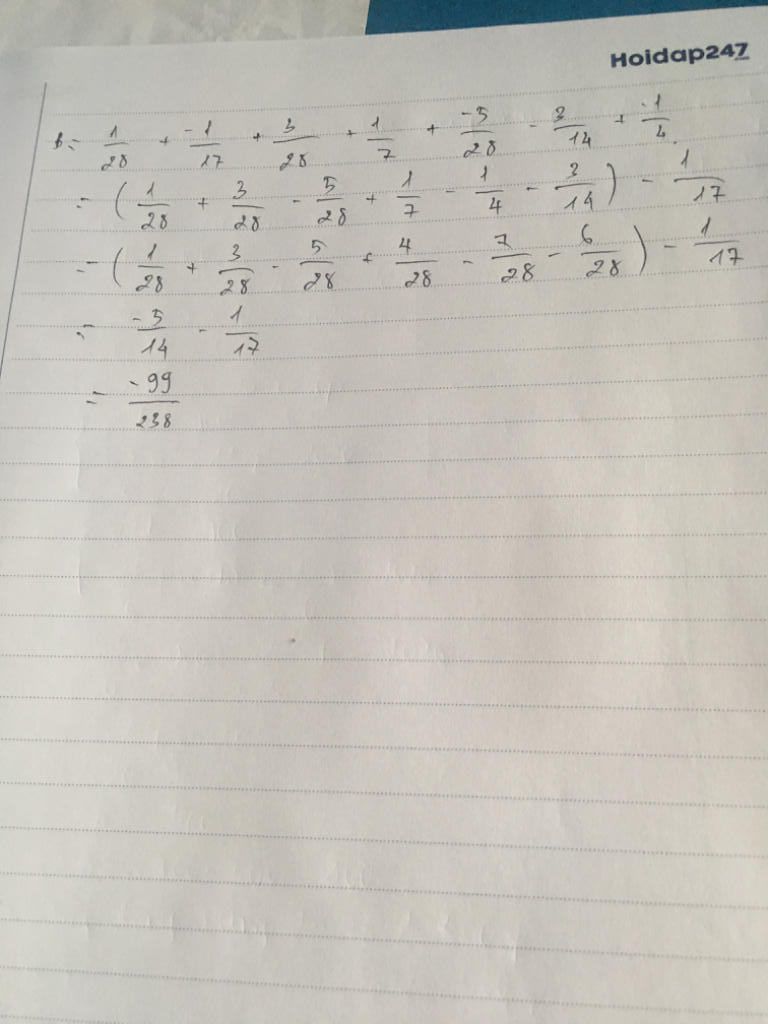 Hoidap247
B = 1/28 + -1/17 + 3/28 + 1/7 + -5/28 - 3/14 + -1/4.
= ( 1/28 + 3/28 - 5/28 + 1/7 - 1/4 - 3/14 ) - 1/17
= ( 1/28 + 3/28 - 5/28 + 4/28 - 7/28 - 6/28 ) - 1/17
= -5/14 - 1/17
= -99/238